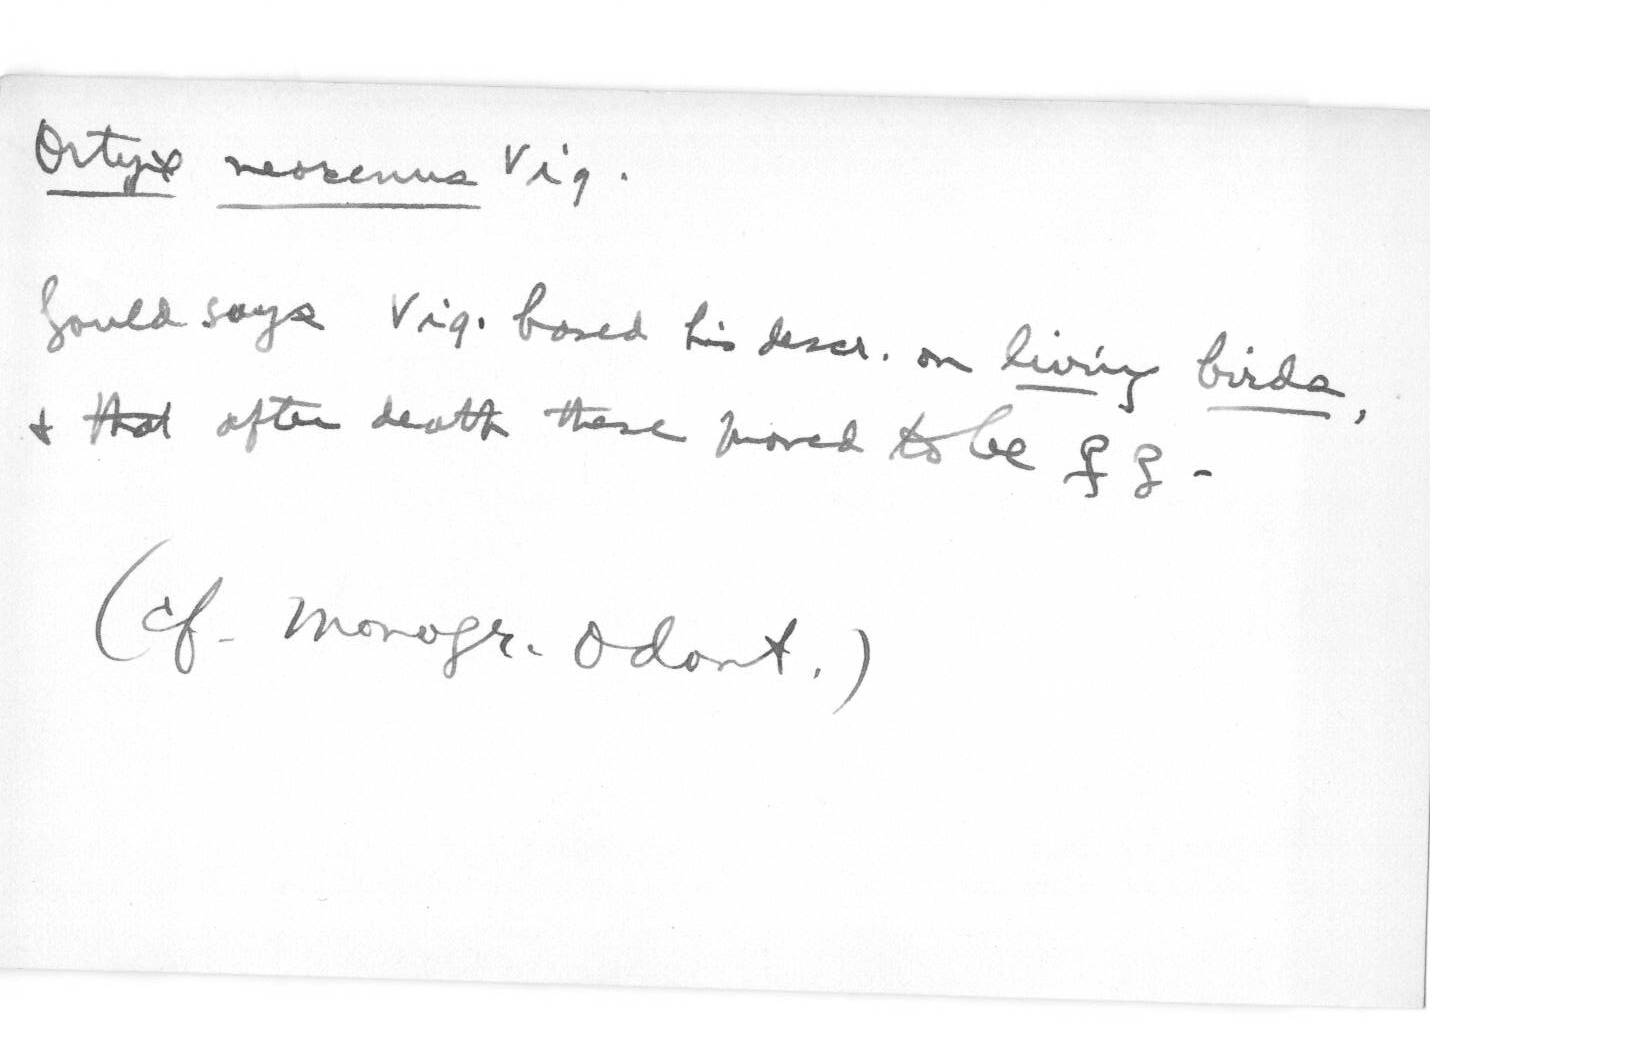 Ortyx neoxenus Vig.
Gould says Vig. based his descr. on living birds,
+ that after death these proved to be ♀♀.
(cf. Monogr. Odont.)